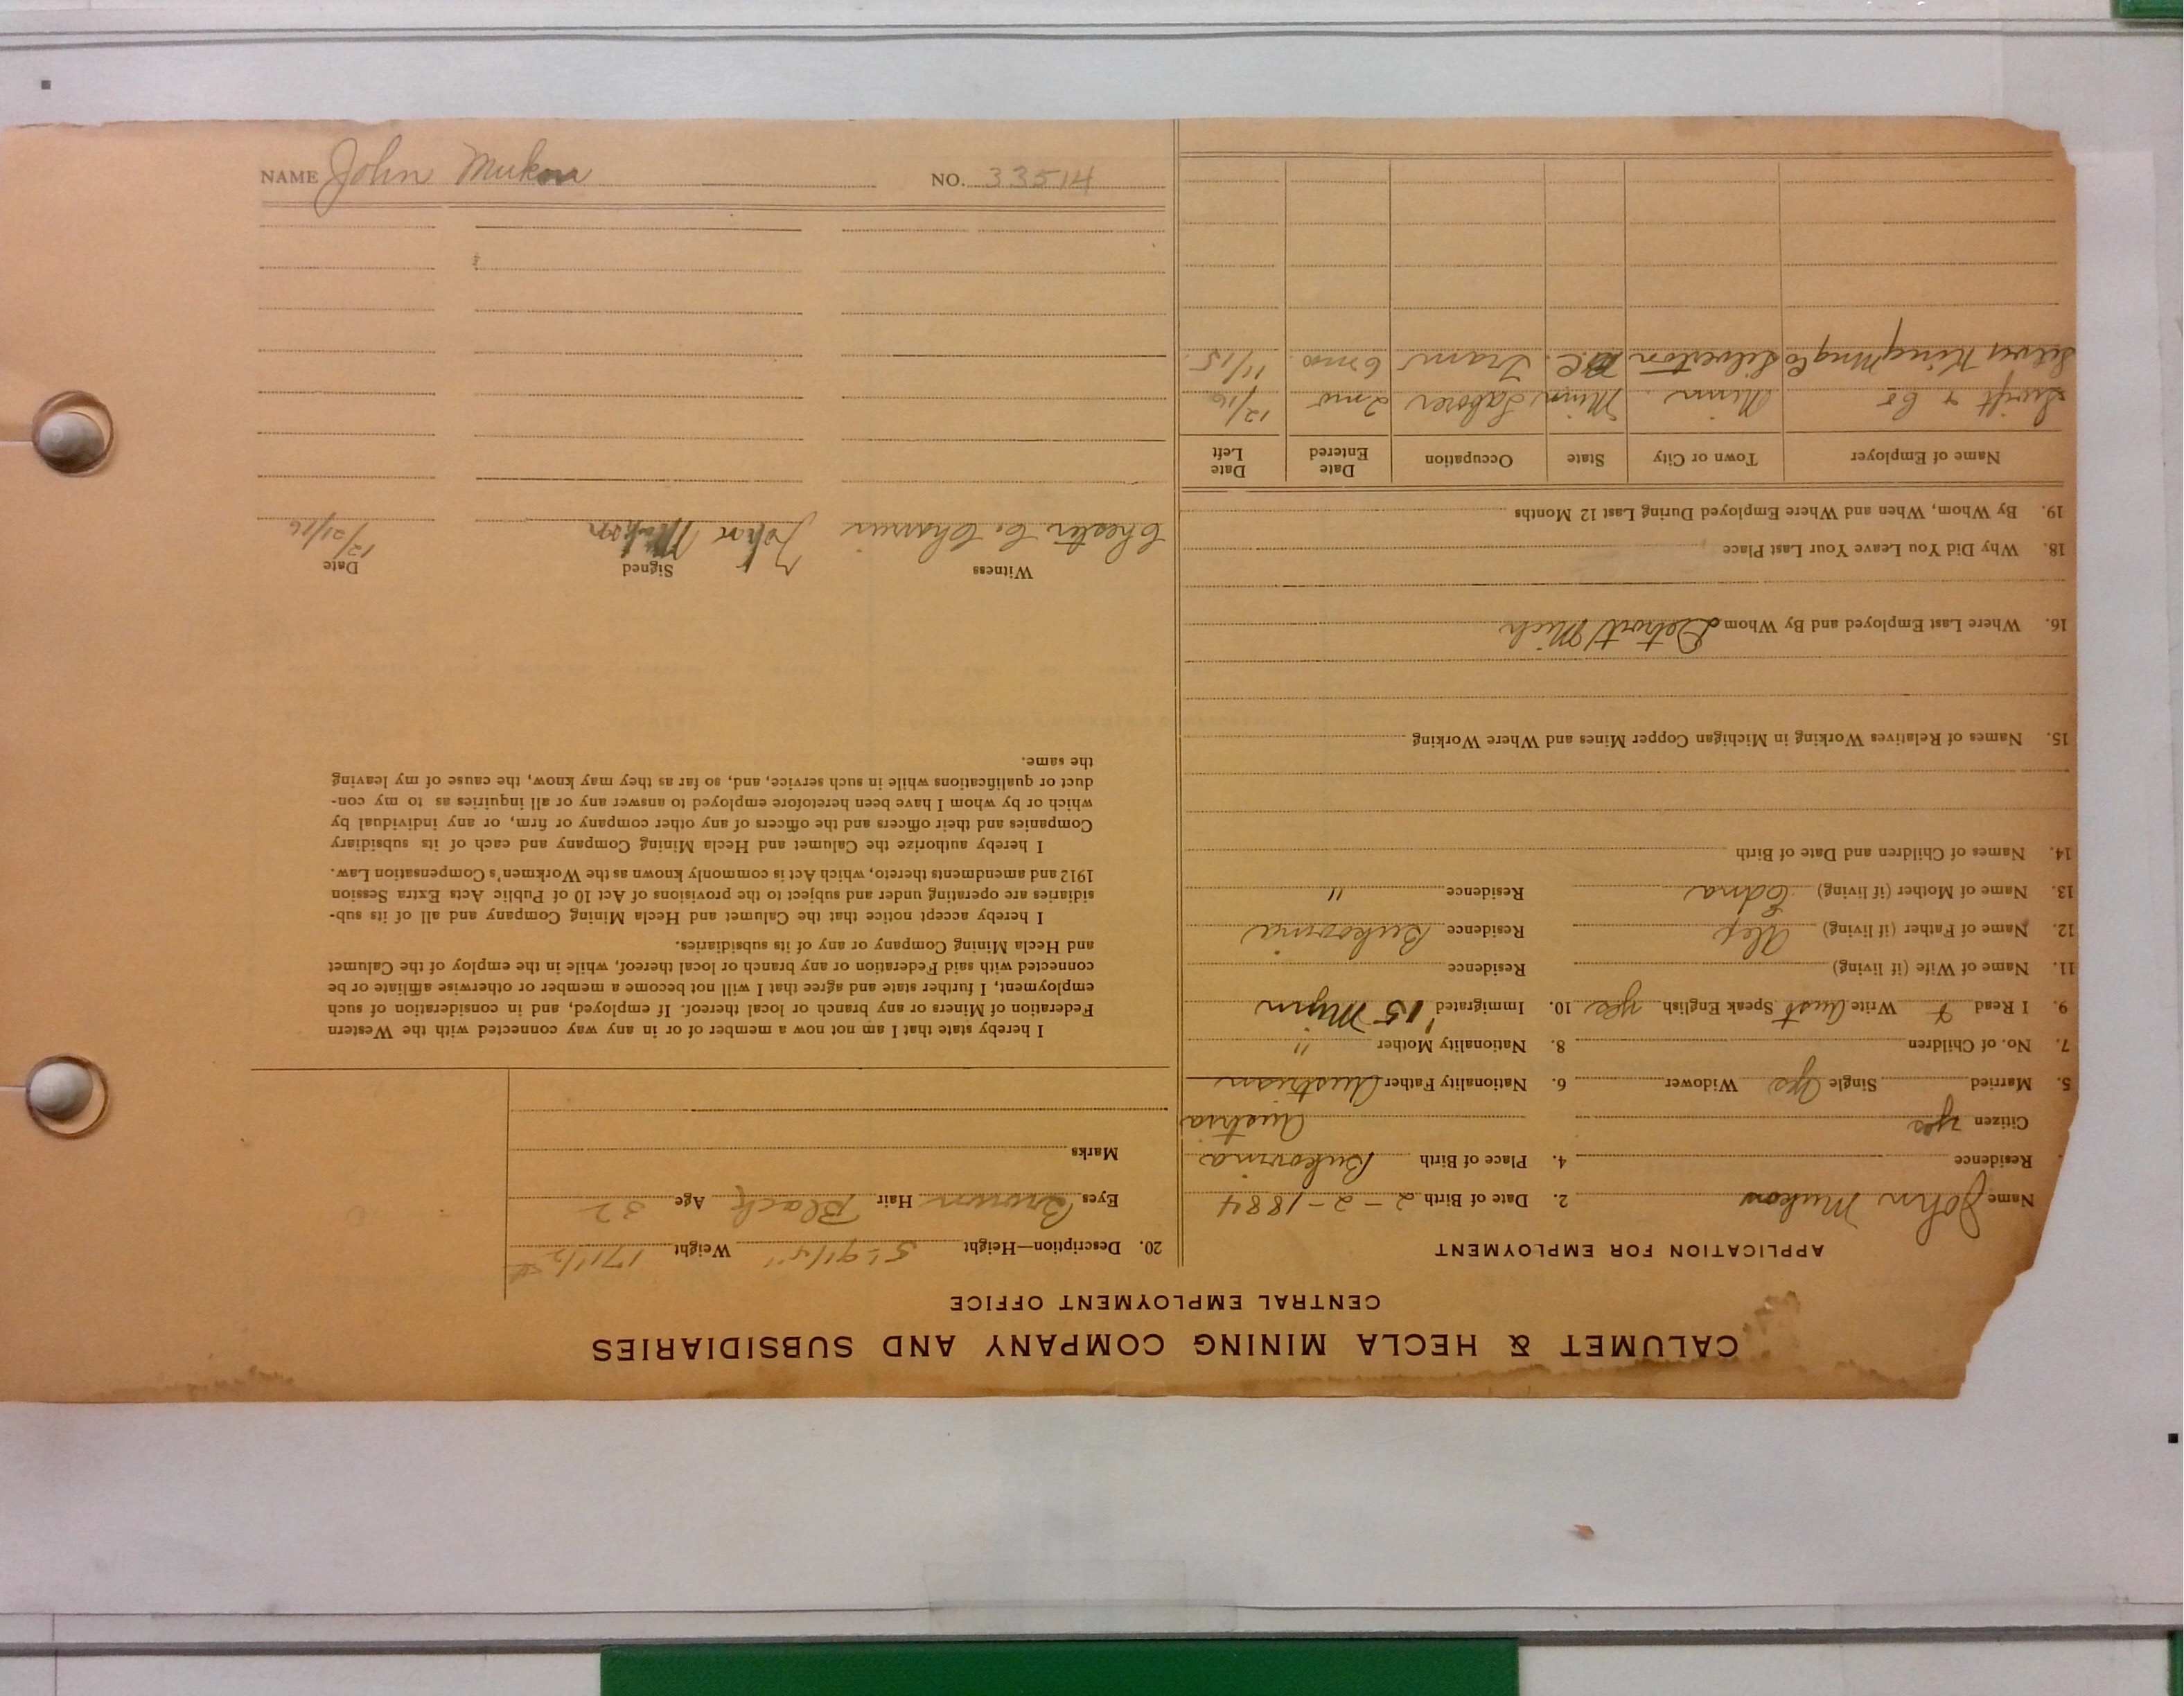 NAME John Mukon NO. 33514
CALUMET & HECLA MINING COMPANY AND SUBSIDIARIES
CENTRAL EMPLOYMENT OFFICE
APPLICATION FOR EMPLOYMENT
Name John Mukon 2. Date of Birth 2-2-1884
Residence 4. Place of Birth Bukovina
Citizen yes Austria
5. Married Single yes Widower 6. Nationality Father Austrian
7. No. of Children 8. Nationality Mother "
9. I Read & Write Aust Speak English yes 10. Immigrated '15 Minn
11. Name of Wife (if living) Residence
12. Name of Father (if living) Alex Residence Bukovina
13. Name of Mother (if living) Edna Residence "
14. Names of Children and Date of Birth
15. Names of Relatives Working in Michigan Copper Mines and Where Working
16. Where Last Employed and By Whom Detroit Mich
18. Why Did You Leave Your Last Place
19. By Whom, When and Where Employed During Last 12 Months
Name of Employer Town or City State Occupation Date Entered Date Left
Swift & Co Minn Minn Laborer 2 mo 12/16
Silver King Mng Co Silverton B.C. Tram 6 mo 11/15
20. Description—Height 5' 9 1/4" Weight 171 1/2 #
Eyes Brown Hair Black Age 32
Marks
I hereby state that I am not now a member of or in any way connected with the Western
Federation of Miners or any branch or local thereof. If employed, and in consideration of such
employment, I further state and agree that I will not become a member or otherwise affiliate or be
connected with said Federation or any branch or local thereof, while in the employ of the Calumet
and Hecla Mining Company or any of its subsidiaries.
I hereby accept notice that the Calumet and Hecla Mining Company and all of its sub-
sidiaries are operating under and subject to the provisions of Act 10 of Public Acts Extra Session
1912 and amendments thereto, which Act is commonly known as the Workmen's Compensation Law.
I hereby authorize the Calumet and Hecla Mining Company and each of its subsidiary
Companies and their officers and the officers of any other company or firm, or any individual by
which or by whom I have been heretofore employed to answer any or all inquiries as to my con-
duct or qualifications while in such service, and, so far as they may know, the cause of my leaving
the same.
Witness Signed Date
Chester C. John Mukon 12/21/16